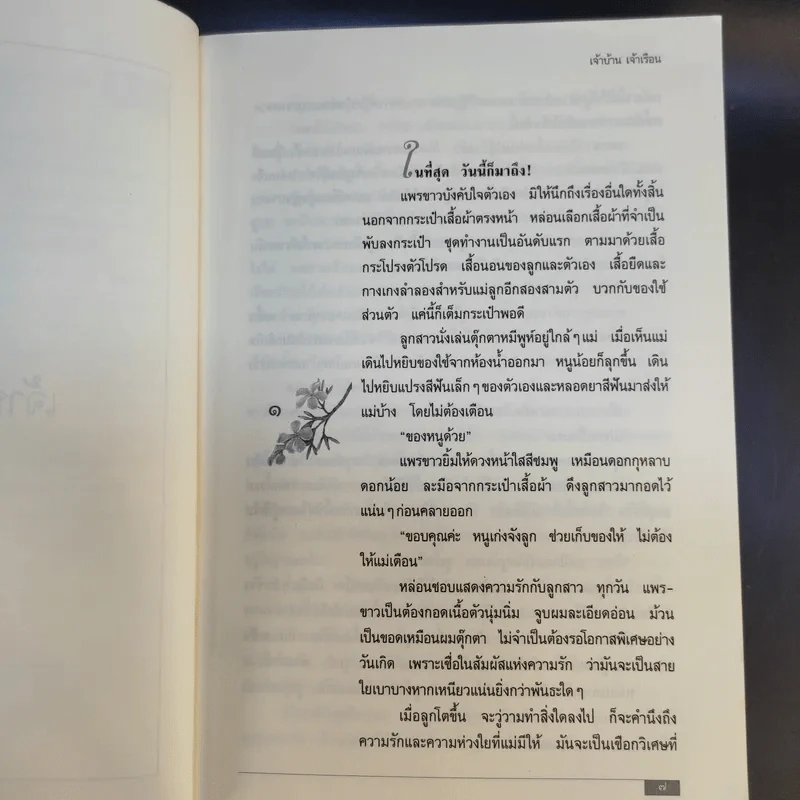 เจ้าบ้าน เจ้าเรือน
ในที่สุด วันนี้ก็มาถึง!
แพรขาวบังคับใจตัวเอง มิให้นึกถึงเรื่องอื่นใดทั้งสิ้น
นอกจากกระเป๋าเสื้อผ้าตรงหน้า หล่อนเลือกเสื้อผ้าที่จำเป็น
พับลงกระเป๋า ชุดทำงานเป็นอันดับแรก ตามมาด้วยเสื้อ
กระโปรงตัวโปรด เสื้อนอนของลูกและตัวเอง เสื้อยืดและ
กางเกงลำลองสำหรับแม่ลูกอีกสองสามตัว บวกกับของใช้
ส่วนตัว แค่นี้ก็เต็มกระเป๋าพอดี
ลูกสาวนั่งเล่นตุ๊กตาหมีพูห์อยู่ใกล้ๆแม่ เมื่อเห็นแม่
เดินไปหยิบของใช้จากห้องน้ำออกมา หนูน้อยก็ลุกขึ้น เดิน
ไปหยิบแปรงสีฟันเล็กๆของตัวเองและหลอดยาสีฟันมาส่งให้
แม่บ้าง โดยไม่ต้องเตือน
๑
“ของหนูด้วย”
แพรขาวยิ้มให้ดวงหน้าใสสีชมพู เหมือนดอกกุหลาบ
ดอกน้อย ละมือจากกระเป๋าเสื้อผ้า ดึงลูกสาวมากอดไว้
แน่นๆก่อนคลายออก
“ขอบคุณค่ะ หนูเก่งจังลูก ช่วยเก็บของให้ ไม่ต้อง
ให้แม่เตือน”
หล่อนชอบแสดงความรักกับลูกสาว ทุกวัน แพร-
ขาวเป็นต้องกอดเนื้อตัวนุ่มนิ่ม จูบผมละเอียดอ่อน ม้วน
เป็นขอดเหมือนผมตุ๊กตา ไม่จำเป็นต้องรอโอกาสพิเศษอย่าง
วันเกิด เพราะเชื่อในสัมผัสแห่งความรัก ว่ามันจะเป็นสาย
ใยเบาบางหากเหนียวแน่นยิ่งกว่าพันธะใดๆ
เมื่อลูกโตขึ้น จะวู่วามทำสิ่งใดลงไป ก็จะคำนึงถึง
ความรักและความห่วงใยที่แม่มีให้ มันจะเป็นเชือกวิเศษที่
๗